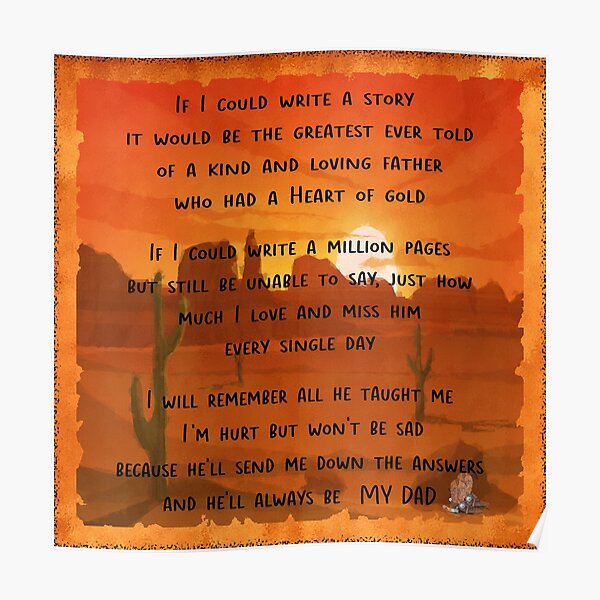 If I could write a story
it would be the greatest ever told
of a kind and loving father
who had a Heart of gold
If I could write a million pages
but still be unable to say, just how
much I love and miss him
every single day
I will remember all he taught me
I'm hurt but won't be sad
because he'll send me down the answers
and he'll always be MY DAD